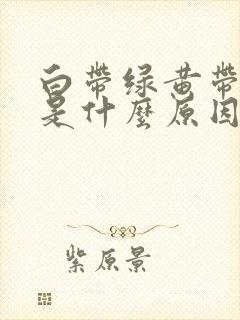 白带绿黄带
是什麼原因
紫原景